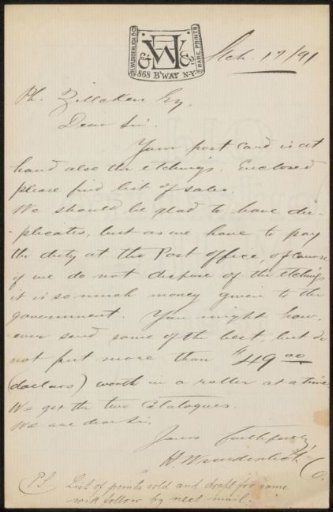 H. WUNDERLICH & CO.
& W H &
RARE PRINTS
868 B'WAY N.Y.
Mch. 17/91
Ph. Zilcken Esq.
Dear Sir.
Your post card is at
hand also the etchings. Enclosed
please find list of sales.
We should be glad to have du-
plicates, but as we have to pay
the duty at the Post office, of course
if we do not dispose of the etchings
it is so much money given to the
government. You might how-
ever send some of the best, but do
not put more than $49 00
(dollars) worth in a roller at a time
We got the two Catalogues.
We are dear Sir,
Yours faithfully
H. Wunderlich & Co.
P.S. List of prints sold and draft for same
will follow by next mail.